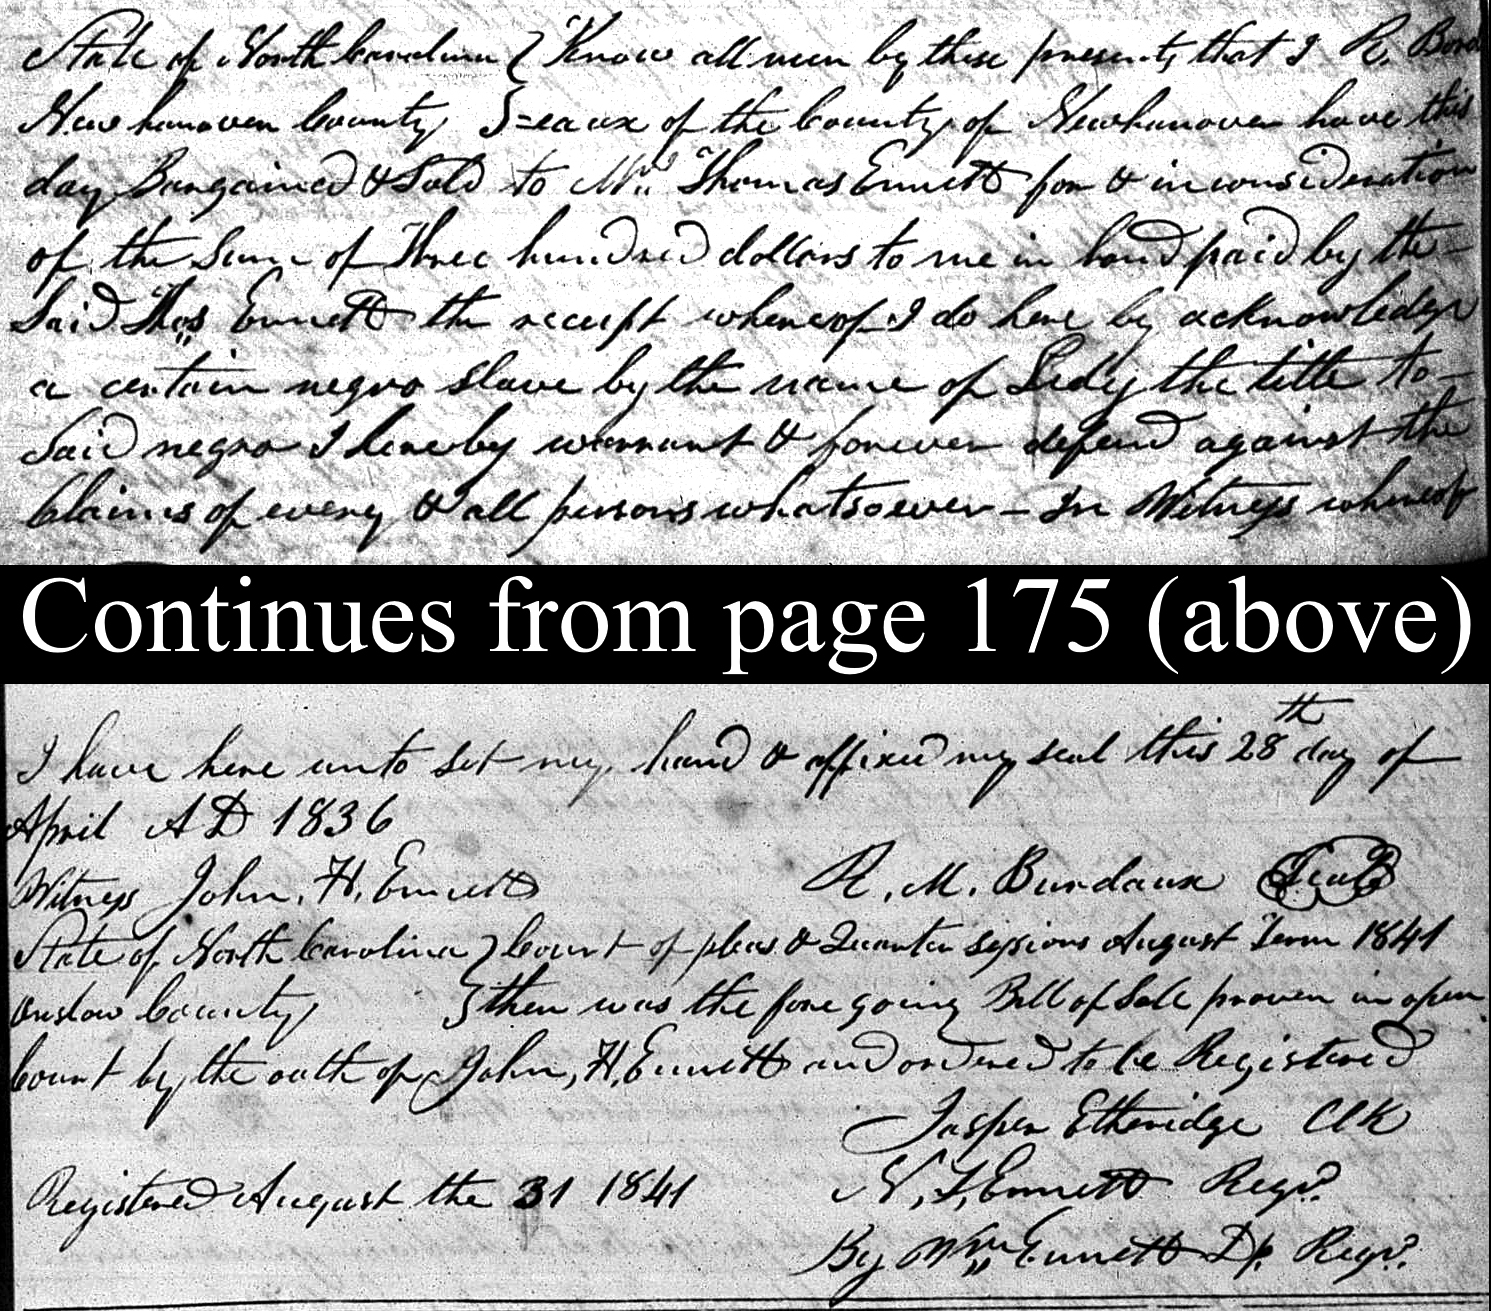 State of North Carolina } Know all men by these presents that I R. Bord
New hanover County } =eaux of the County of Newhanover have this
day Bargained & Sold to Mr. Thomas Ennett for & in consideration
of the Sum of Three hundred dollars to me in hand paid by the
Said Thos Ennett the receipt whereof I do here by acknowledge
a certain negro slave by the name of Ledy the title to
Said negro I hereby warrant & forever defend against the
Claims of every & all persons whatsoever - In Witness whereof
Continues from page 175 (above)
I have here unto set my hand & affixed my seal this 28th day of
April AD 1836
Witness John, H, Ennett R. M. Burdaux Seal
State of North Carolina } Court of pleas & Quarter sessions August Term 1841
Onslow County } then was the fore going Bill of Sale proven in open
Court by the oath of John, H, Ennett and ordered to be Registered
Jasper Etheridge Clk
Registered August the 31 1841 N, L, Ennett Regr.
By Wm Ennett Dp. Regr.